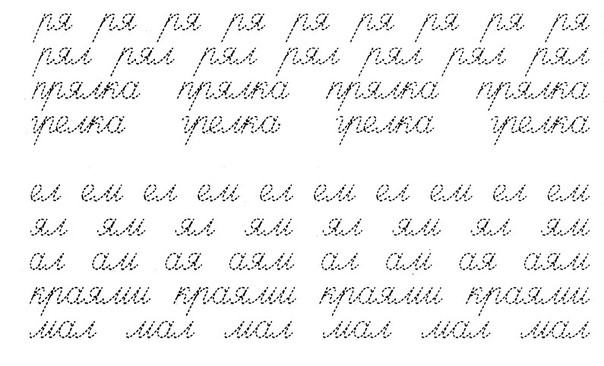 ря ря ря ря ря ря ря ря ря
рял рял рял рял рял рял рял
прялка прялка прялка прялка
грелка грелка грелка грелка
ел ем ел ем ел ем ел ем ел ем
ял ям ял ям ял ям ял ям
ал ам ая аям ал ам ая аям
краями краями краями краями
мал мал мал мал мал мал